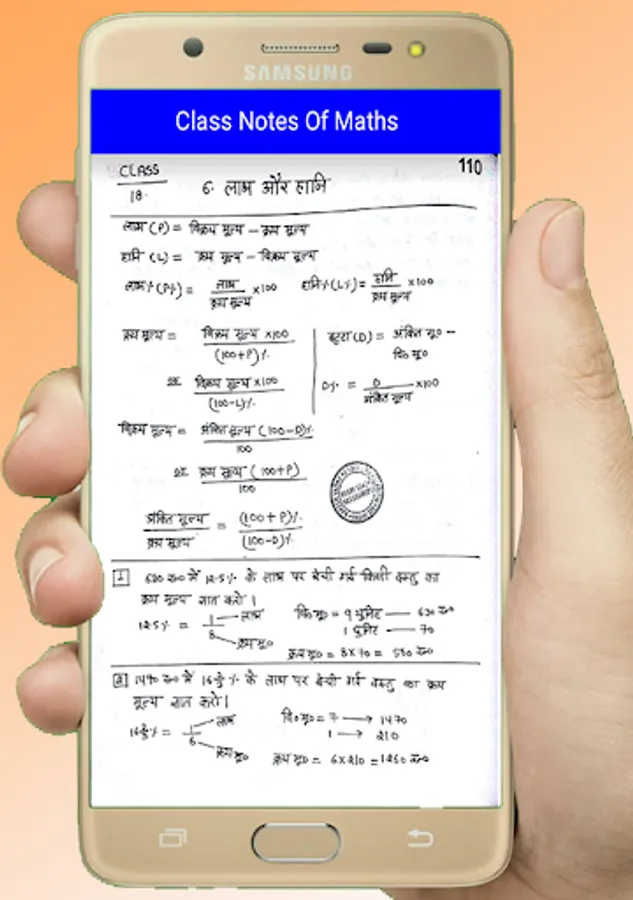 SAMSUNG
Class Notes Of Maths
CLASS
18.
110
6. लाभ और हानि
लाभ (P) = विक्रय मूल्य – क्रय मूल्य
हानि (L) = क्रय मूल्य – विक्रय मूल्य
लाभ % (P%) = लाभ / क्रय मूल्य ×100 हानि % (L%) = हानि / क्रय मूल्य ×100
क्रय मूल्य = विक्रय मूल्य ×100 / (100+P)%
विक्रय मूल्य ×100 / (100-L)%
(D) = अंकित मू० –
वि० मू०
D% = D / अंकित मूल्य ×100
विक्रय मूल्य = अंकित मूल्य (100-D)% / 100
क्रय मूल्य (100+P) / 100
अंकित मूल्य / क्रय मूल्य = (100+P)% / (100-D)%
1 630 रू० में 12.5% के लाभ पर बेची गई किसी वस्तु का
क्रय मूल्य ज्ञात करो।
12.5% = 1/8 लाभ क्रय मू०
वि० मू० = 9 यूनिट — 630 रू०
1 यूनिट — 70
क्रय मू० = 8×70 = 560 रू०
2 1470 रू० में 16⅔% के लाभ पर बेची गई वस्तु का क्रय
मूल्य ज्ञात करो।
16⅔% = 1/6 लाभ क्रय मू०
वि० मू० = 7 → 1470
1 → 210
क्रय मू० = 6×210 = 1260 रू०